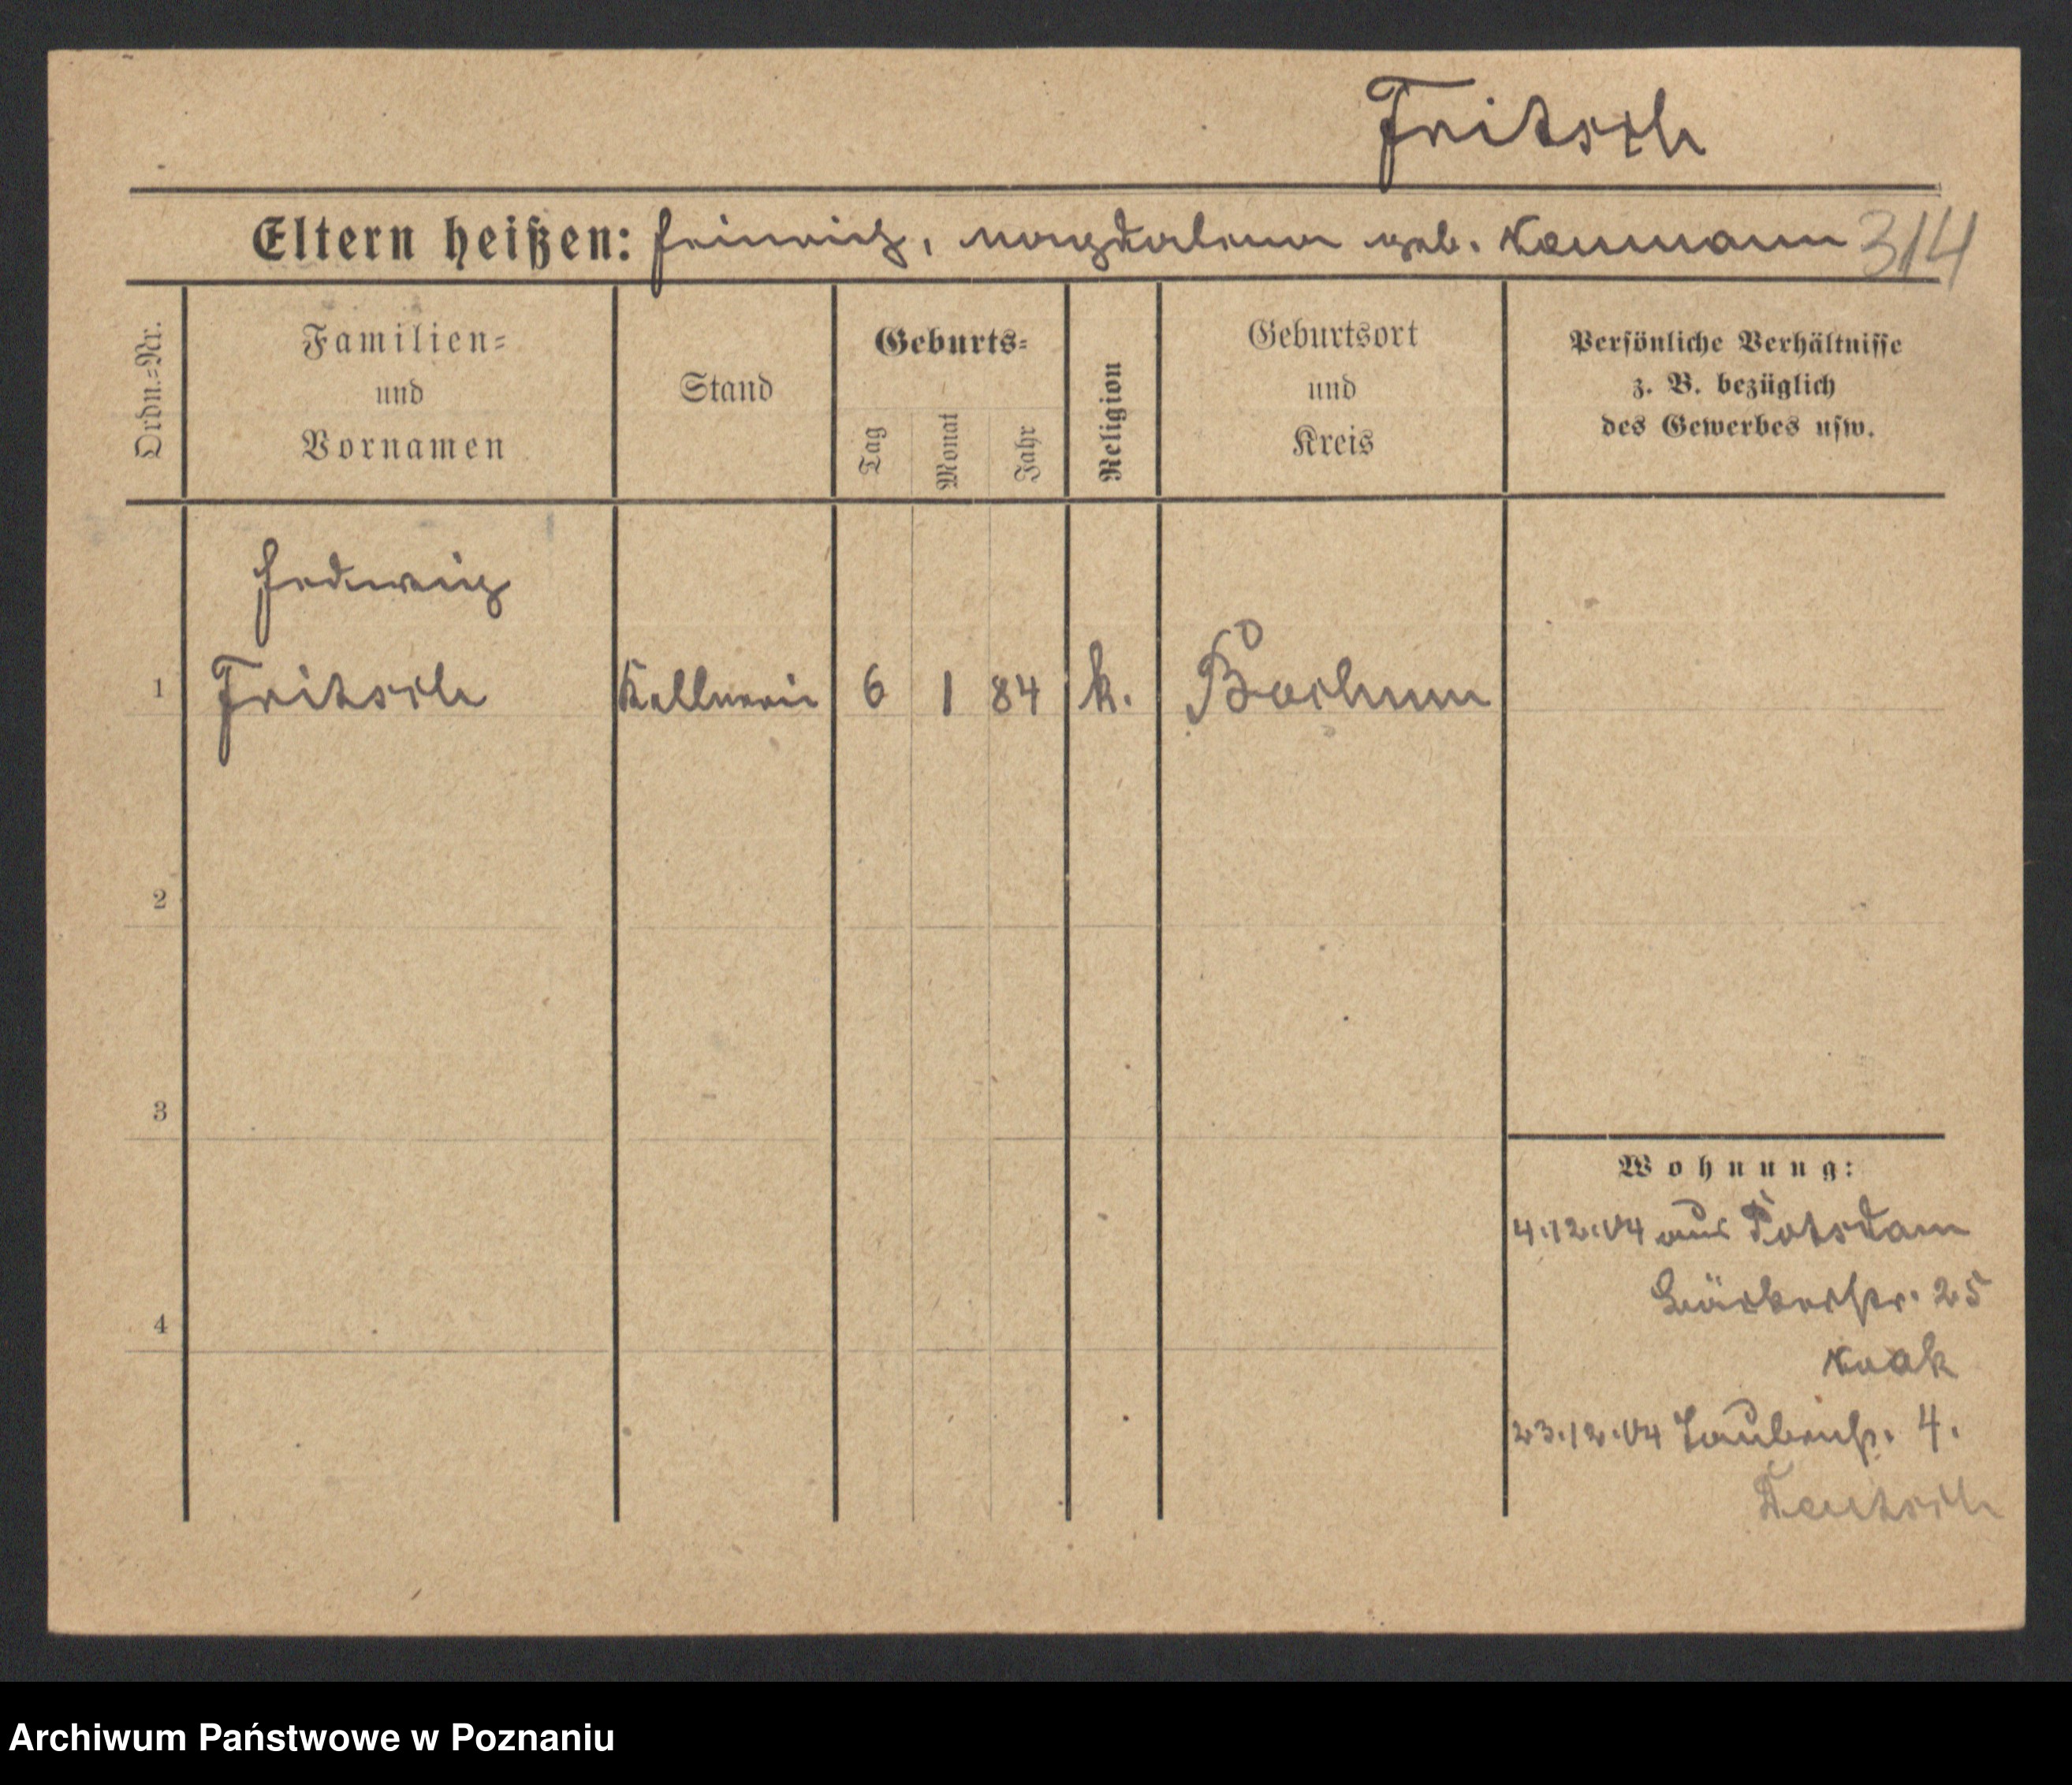 Fritsch
Eltern heißen: Heinrich, Magdalena geb. 314
Ordn.=Nr.
Familien=
und
Vornamen
Stand
Geburts=
Tag
Monat
Jahr
Religion
Geburtsort
und
Kreis
Persönliche Verhältnisse
z. B. bezüglich
des Gewerbes usw.
Hedwig
1 Fritsch Kellnerin 6 1 84 k. Bochum
2
3
4
Wohnung:
4.12.04 aus Potsdam
Bäckerstr. 25
23.12.04 Taubenstr. 4.
Deutsch
Archiwum Państwowe w Poznaniu